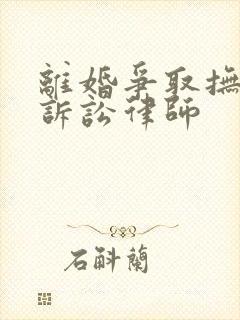 離婚爭取撫
訴訟律師
石斛蘭